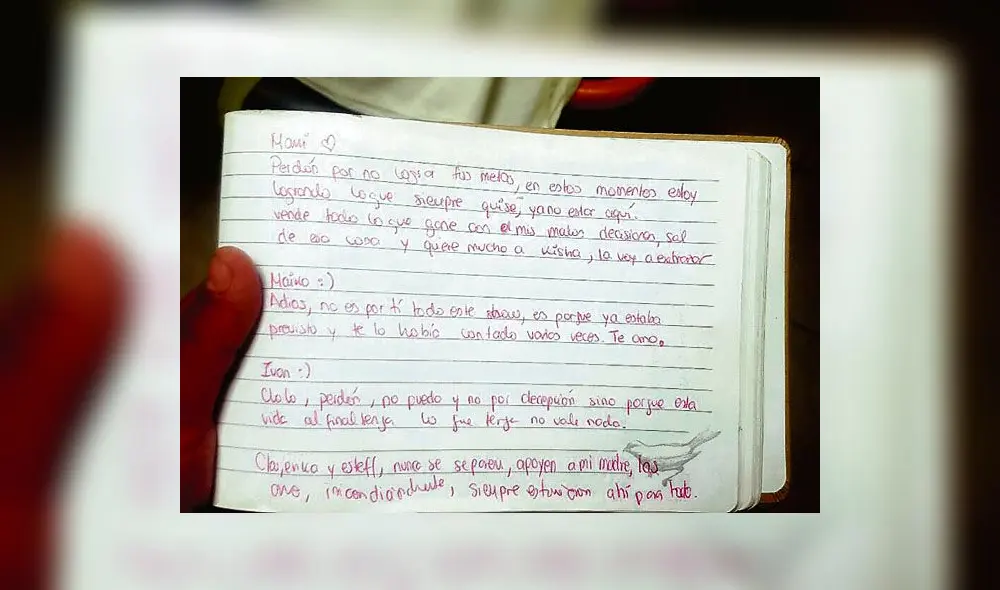 Mami ♡
Perdón por no lograr tus metas, en estos momentos estoy
logrando lo que siempre quise, ya no estar aquí.
vende todo lo que gane con mis malas decisiones, sal
de esa casa y quiere mucho a Kisha, la voy a extrañar
Maiko :)
Adios, no es por tí todo este show, es porque ya estaba
previsto y te lo había contado varias veces. Te amo.
Ivan :)
Cholo, perdón, no puedo y no por decepción sino porque esta
vida al final tenga lo que tenga no vale nada.
y esteff, nunca se separen, apoyen a mi madre, las
siempre estuvieron ahí para todo.